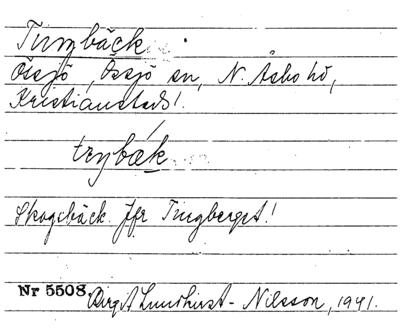 Tungbäck
Össjö, Össjö sn, N. Åsbo hd,
Kristianstads l.
Skogsbäck. Jfr Tingberget!
Nr 5508. Birgit Lundkvist-Nilsson, 1941.